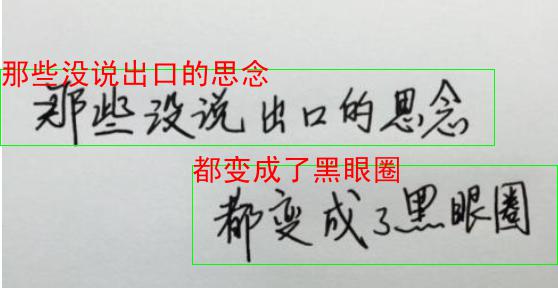 那些没说出口的思念
那些没说出口的思念
都变成了黑眼圈
都变成了黑眼圈